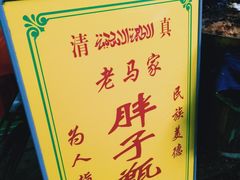 清 真
老马家
胖子甑
民族美德
为人